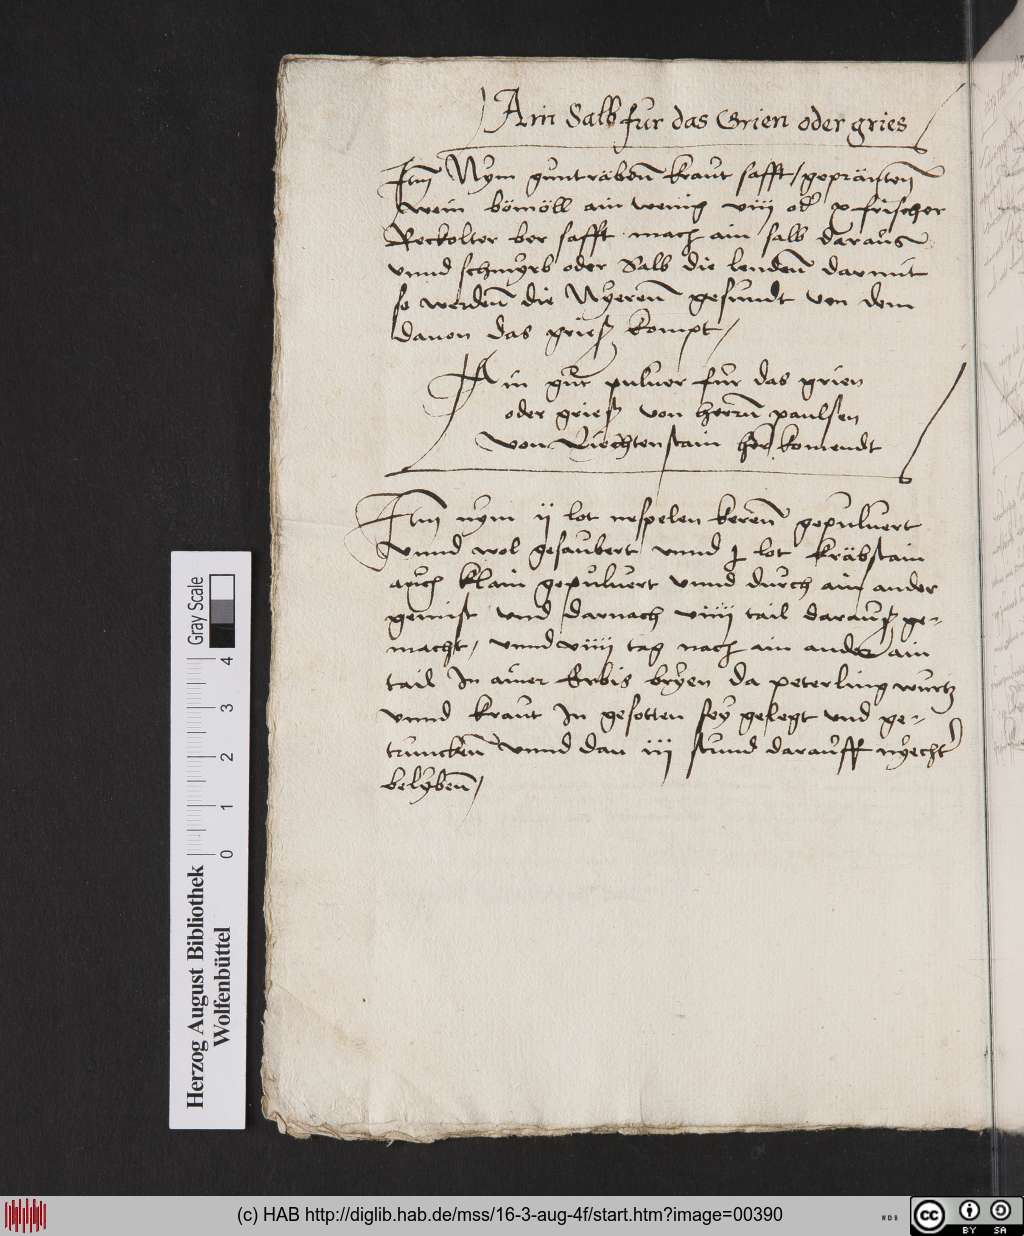 Ain Salb fur das Grien oder gries
Itm Nym gunträbenn kraut safft / gepränten
wein bömöll ain wenig viij od x frischer
Reckolter ber safft mach ain salb daraus
vnnd schmyrb oder Salb die lendenn darmit
so werdenn die Nyerenn gesundt von dem
dauon das grieß kompt /
Ain gut puluer fur das grien
oder grieß von herrn paulsen
von Liechtenstain her komendt
Itm nym ij lot nespelen kerenn gepuluert
vnnd wol gesaubert vnnd j lot kräbstain
auch klain gepuluert vnnd durch ain ander
gemist vnd darnach viiij tail darauß ge-
macht / vnnd viiij tag nach ain ander ain
tail In ainer Erbis bryen da peterling wurtz
vnnd kraut In gesotten sey gelegt vnd ge-
trunckenn vnnd dan iij stund darauff nyecht
belybenn /
Gray Scale
0 1 2 3 4
Herzog August Bibliothek
Wolfenbüttel
(c) HAB http://diglib.hab.de/mss/16-3-aug-4f/start.htm?image=00390
WDB
cc BY SA